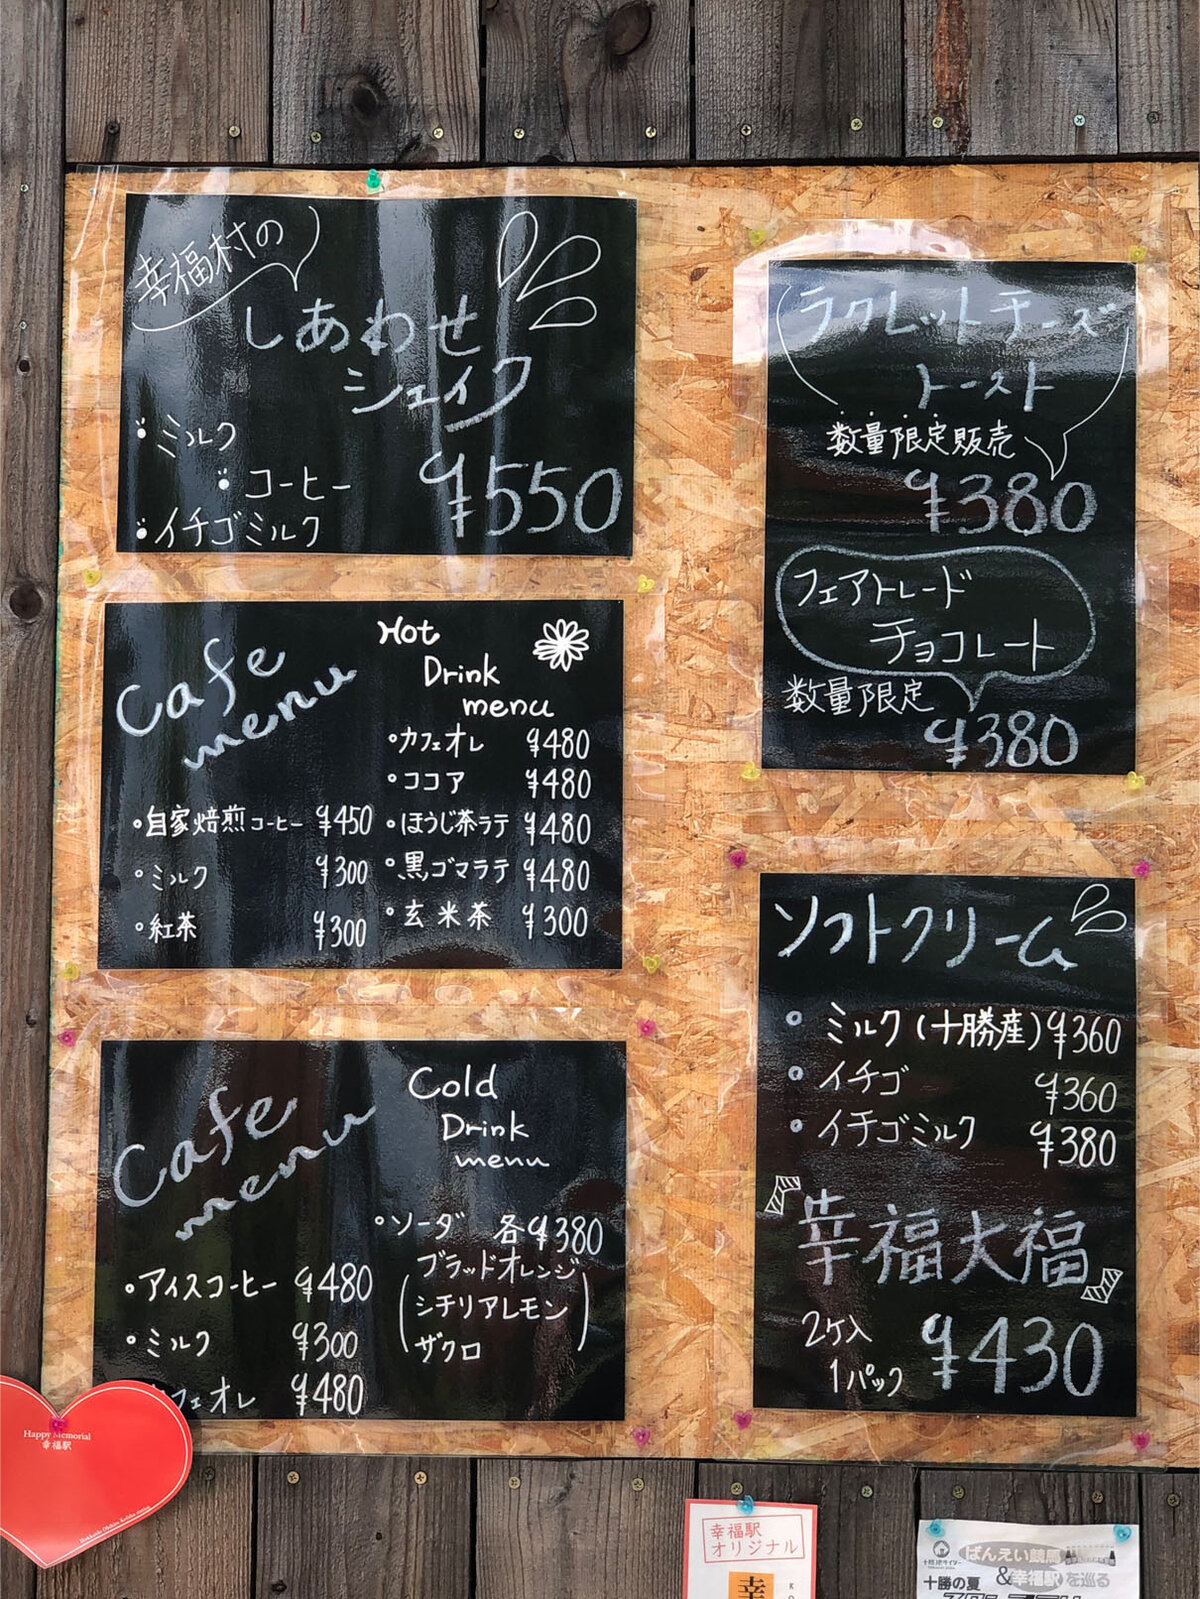 幸福村の
しあわせ
シェイク
・ミルク
・コーヒー
・イチゴミルク
¥550
Cafe
menu
・自家焙煎コーヒー ¥450
・ミルク ¥300
・紅茶 ¥300
Hot
Drink
menu
・カフェオレ ¥480
・ココア ¥480
・ほうじ茶ラテ ¥480
・黒ゴマラテ ¥480
・玄米茶 ¥300
Cafe
menu
・アイスコーヒー ¥480
・ミルク ¥300
フェオレ ¥480
Cold
Drink
menu
・ソーダ 各¥380
(ブラッドオレンジ
シチリアレモン
ザクロ)
ラクレットチーズ
トースト
数量限定販売
¥380
フェアトレード
チョコレート
数量限定
¥380
ソフトクリーム
・ミルク(十勝産) ¥360
・イチゴ ¥360
・イチゴミルク ¥380
幸福大福
2ケ入
1パック ¥430
Happy Memorial
幸福駅
幸福駅
オリジナル
幸
ばんえい競馬
&幸福駅を巡る
十勝の夏